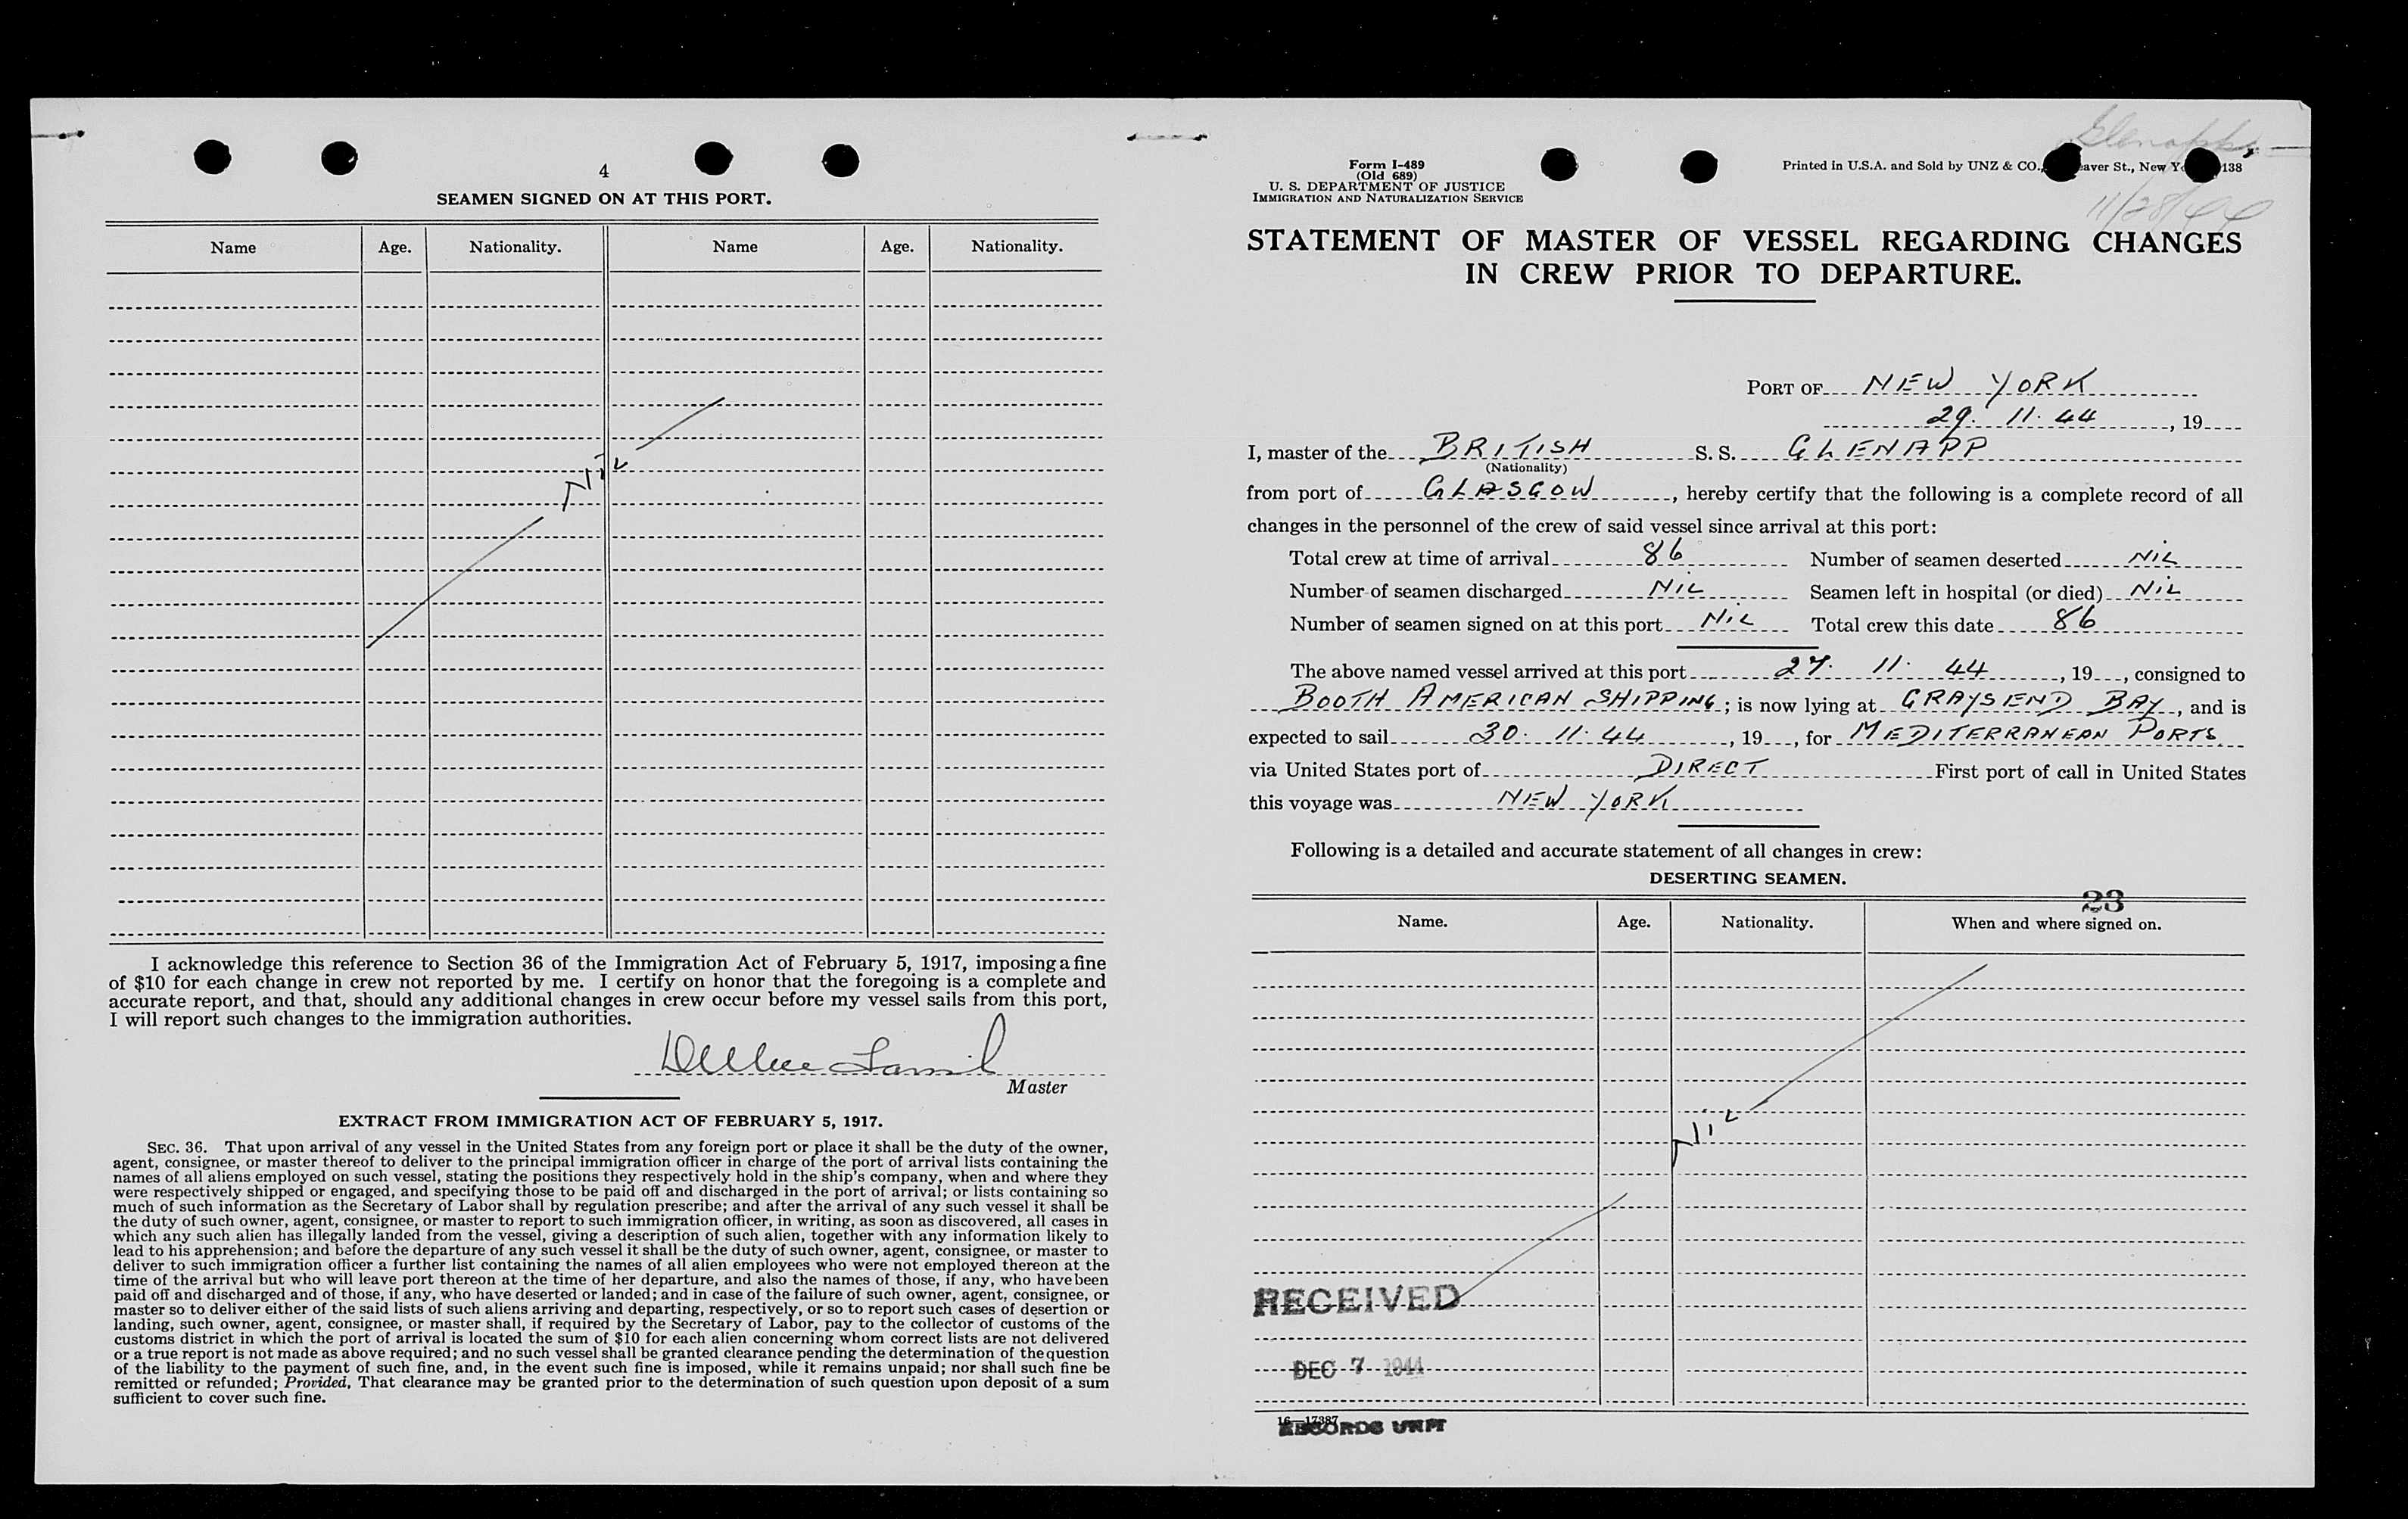 4
SEAMEN SIGNED ON AT THIS PORT.
Name Age. Nationality. Name Age. Nationality.
Nil
I acknowledge this reference to Section 36 of the Immigration Act of February 5, 1917, imposing a fine
of $10 for each change in crew not reported by me. I certify on honor that the foregoing is a complete and
accurate report, and that, should any additional changes in crew occur before my vessel sails from this port,
I will report such changes to the immigration authorities.
Master
EXTRACT FROM IMMIGRATION ACT OF FEBRUARY 5, 1917.
SEC. 36. That upon arrival of any vessel in the United States from any foreign port or place it shall be the duty of the owner,
agent, consignee, or master thereof to deliver to the principal immigration officer in charge of the port of arrival lists containing the
names of all aliens employed on such vessel, stating the positions they respectively hold in the ship's company, when and where they
were respectively shipped or engaged, and specifying those to be paid off and discharged in the port of arrival; or lists containing so
much of such information as the Secretary of Labor shall by regulation prescribe; and after the arrival of any such vessel it shall be
the duty of such owner, agent, consignee, or master to report to such immigration officer, in writing, as soon as discovered, all cases in
which any such alien has illegally landed from the vessel, giving a description of such alien, together with any information likely to
lead to his apprehension; and before the departure of any such vessel it shall be the duty of such owner, agent, consignee, or master to
deliver to such immigration officer a further list containing the names of all alien employees who were not employed thereon at the
time of the arrival but who will leave port thereon at the time of her departure, and also the names of those, if any, who have been
paid off and discharged and of those, if any, who have deserted or landed; and in case of the failure of such owner, agent, consignee, or
master so to deliver either of the said lists of such aliens arriving and departing, respectively, or so to report such cases of desertion or
landing, such owner, agent, consignee, or master shall, if required by the Secretary of Labor, pay to the collector of customs of the
customs district in which the port of arrival is located the sum of $10 for each alien concerning whom correct lists are not delivered
or a true report is not made as above required; and no such vessel shall be granted clearance pending the determination of the question
of the liability to the payment of such fine, and, in the event such fine is imposed, while it remains unpaid; nor shall such fine be
remitted or refunded; Provided, That clearance may be granted prior to the determination of such question upon deposit of a sum
sufficient to cover such fine.
Glenapp
11/28/44
Form I-489
(Old 689)
U. S. DEPARTMENT OF JUSTICE
IMMIGRATION AND NATURALIZATION SERVICE
Printed in U.S.A. and Sold by UNZ & CO., aver St., New Y 138
STATEMENT OF MASTER OF VESSEL REGARDING CHANGES
IN CREW PRIOR TO DEPARTURE.
PORT OF NEW YORK
29. 11. 44, 19
I, master of the BRITISH S. S. GLENAPP
(Nationality)
from port of GLASGOW, hereby certify that the following is a complete record of all
changes in the personnel of the crew of said vessel since arrival at this port:
Total crew at time of arrival 86 Number of seamen deserted NIL
Number of seamen discharged NIL Seamen left in hospital (or died) NIL
Number of seamen signed on at this port NIL Total crew this date 86
The above named vessel arrived at this port 27. 11. 44, 19, consigned to
BOOTH AMERICAN SHIPPING; is now lying at GRAYSEND BAY, and is
expected to sail 30. 11. 44, 19, for MEDITERRANEAN PORTS
via United States port of DIRECT First port of call in United States
this voyage was NEW YORK
Following is a detailed and accurate statement of all changes in crew:
DESERTING SEAMEN.
23
Name. Age. Nationality. When and where signed on.
Nil
RECEIVED
DEC 7 1944
16—17387
RECORDS UNIT